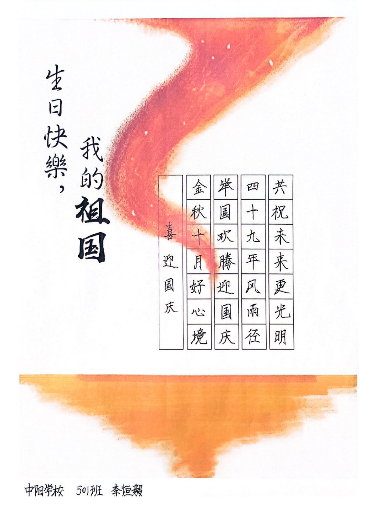 生日快樂，
我的祖国
喜迎國庆
金秋十月好心境
举国欢腾迎国庆
四十九年风雨径
共祝未来更光明
中阳学校 501班 李恒颖